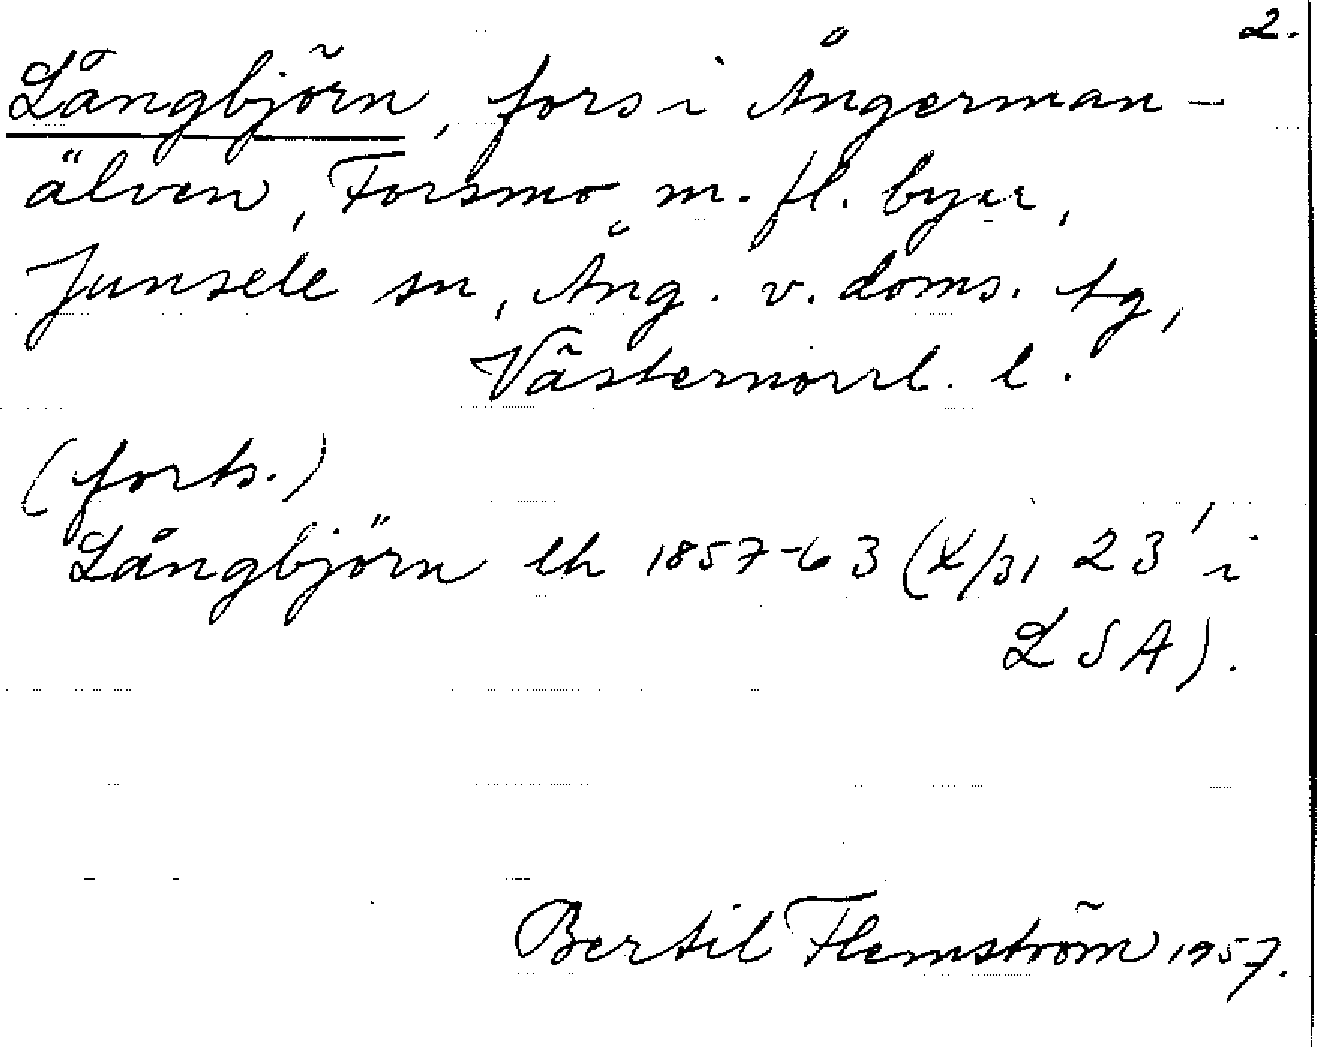 2.
Långbjörn, fors i Ångerman-
älven, Forsmo m. fl. byar,
Junsele sn, Ång. v. doms. tg,
Västernorrl. l.
(forts.)
Långbjörn lh 1857-63 (X/31 23' i
LSA).
Bertil Flemström 1957.